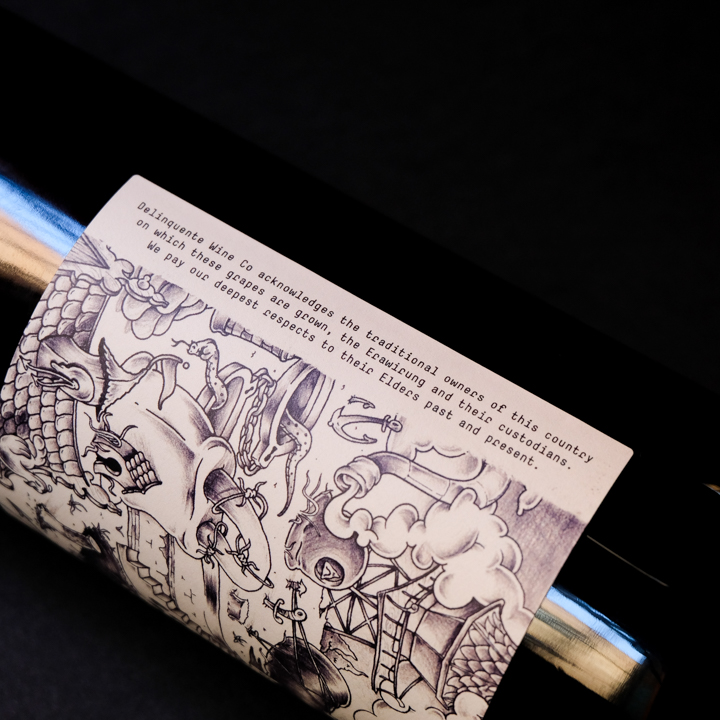 Delinquente Wine Co acknowledges the traditional owners of this country
on which these grapes are grown, the Erawirung and their custodians.
We pay our deepest respects to their Elders past and present.